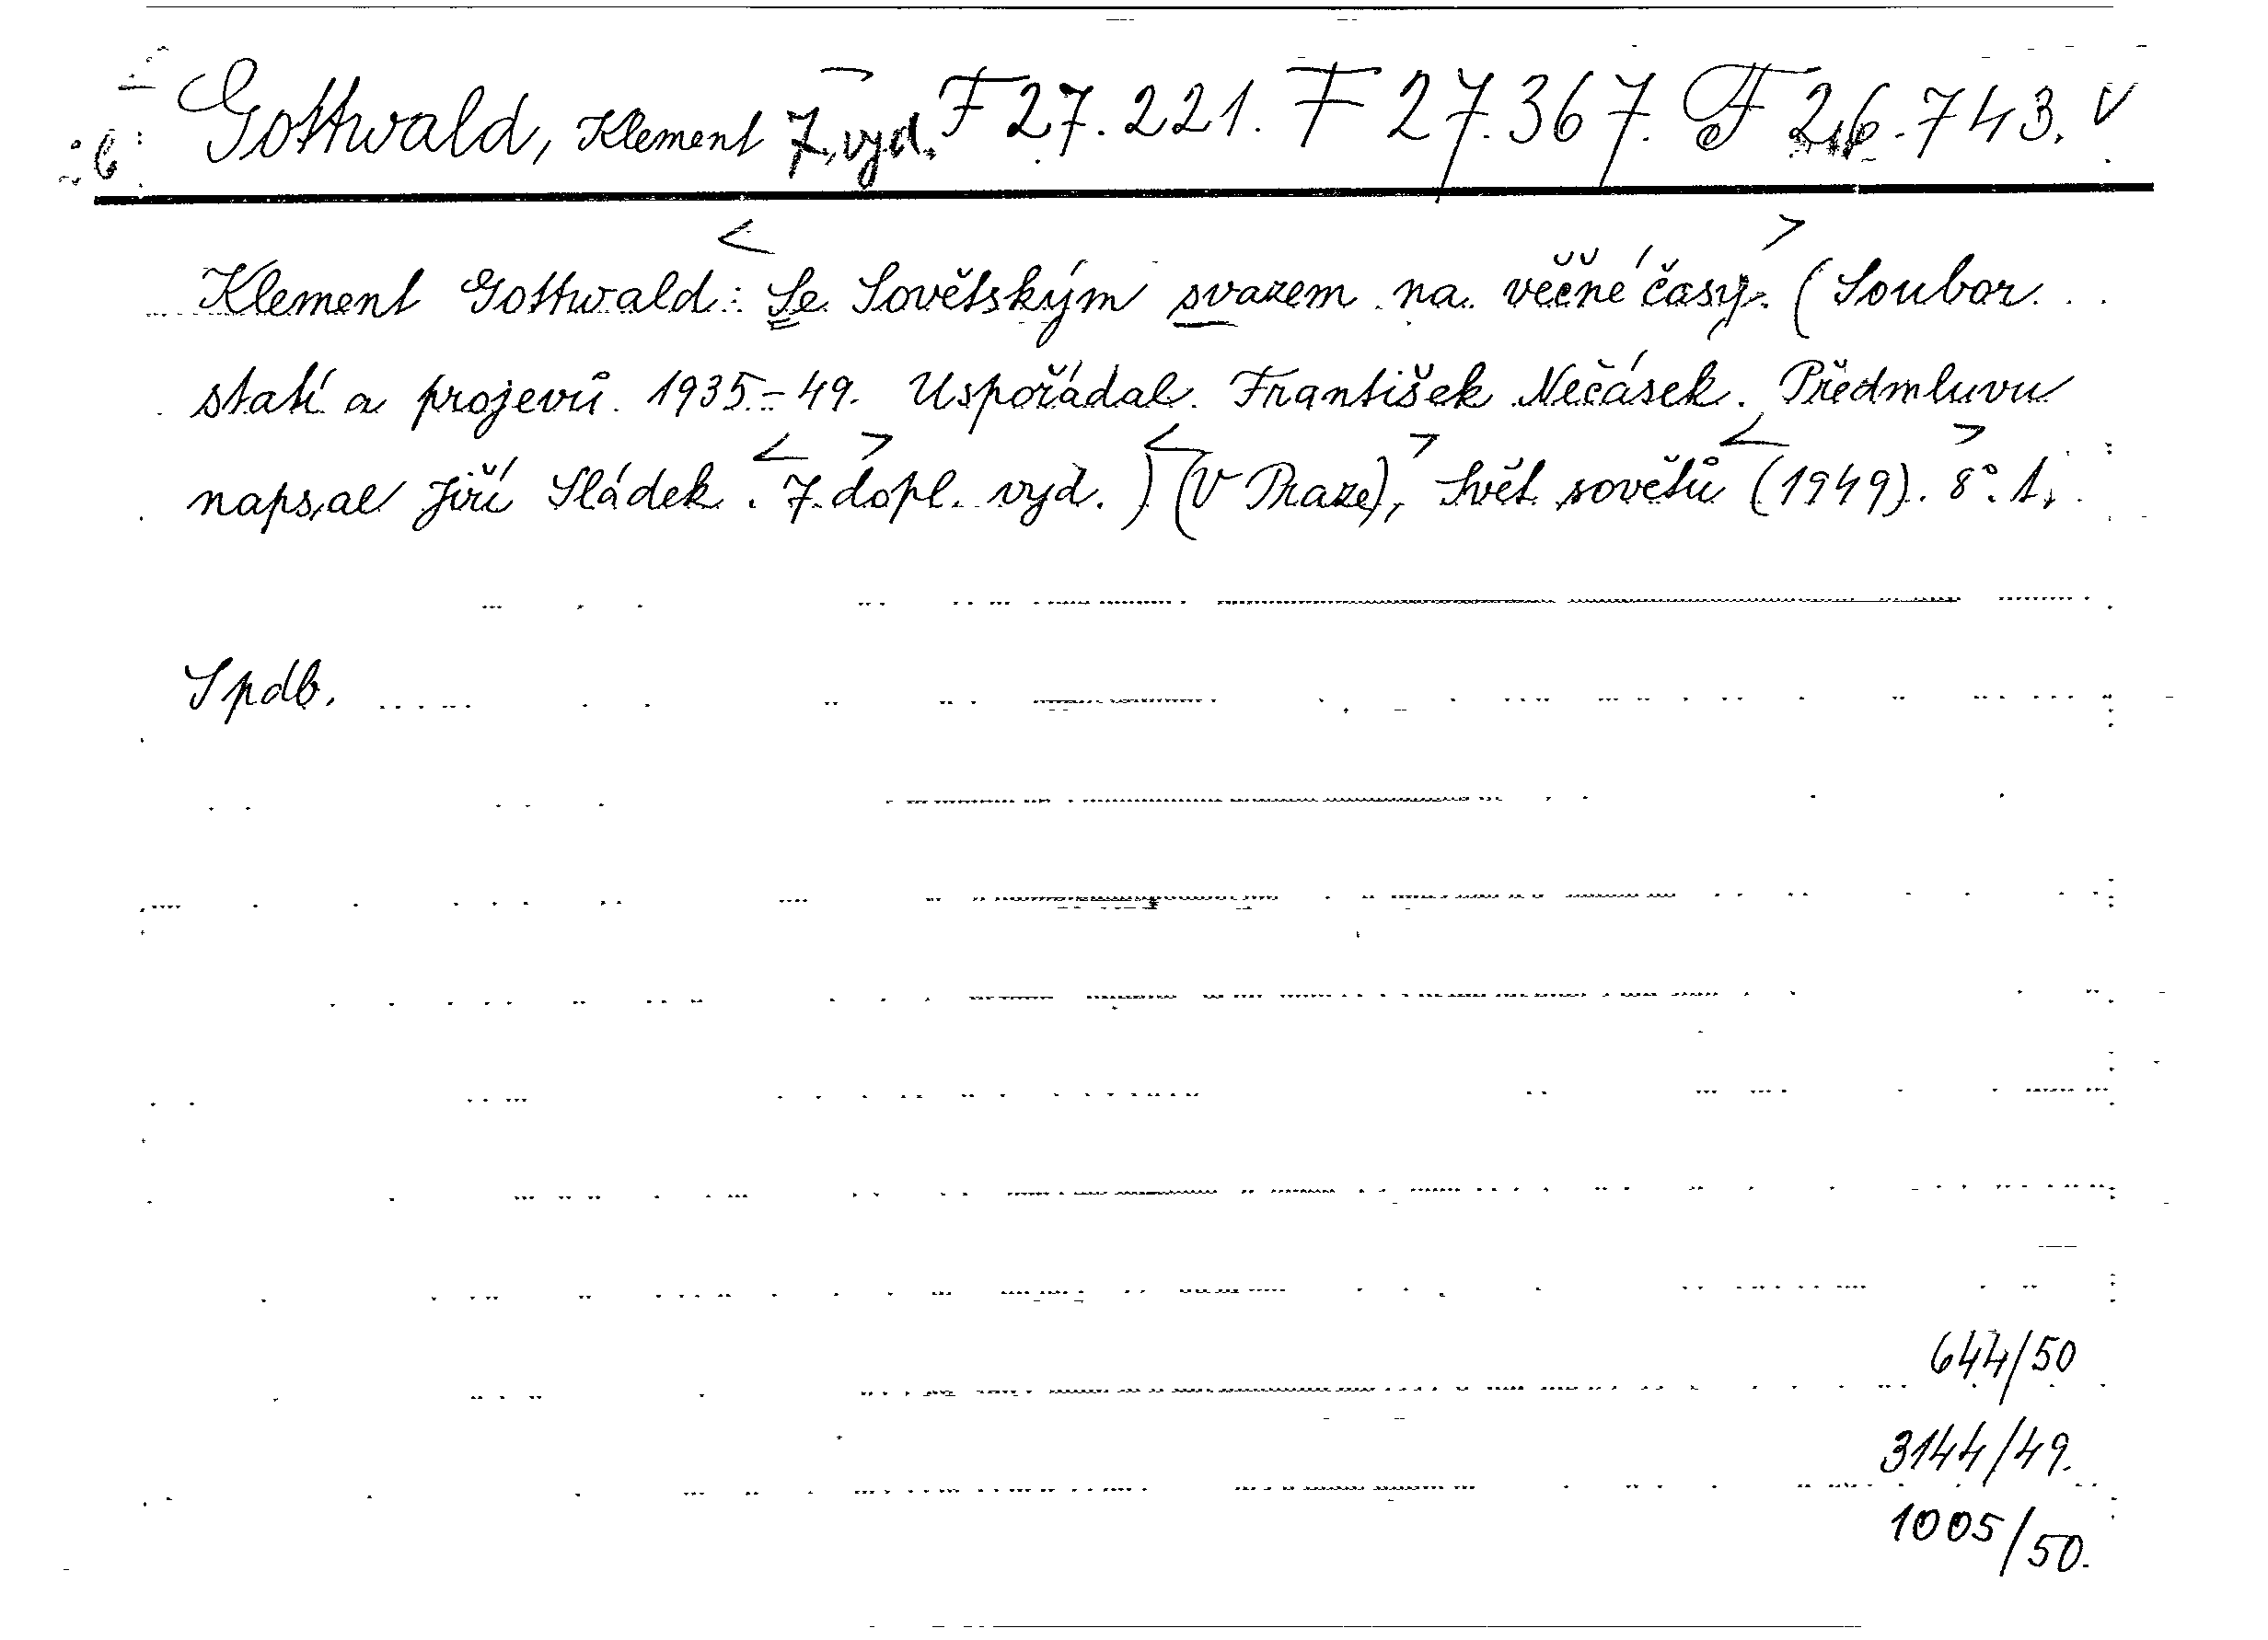 Gottwald, Klement 7. vyd. F 27.221. F 27.367. F 26.743. V
Klement Gottwald: Se Sovětským svazem na věčné časy. (Soubor
statí a projevů 1935-49. Uspořádal František Nečásek. Předmluvu
napsal Jiří Sládek. 7. dopl. vyd.) (V Praze), Svět sovětů (1949). 8°. 1.
Spdb.
644/50
3144/49.
1005/50.